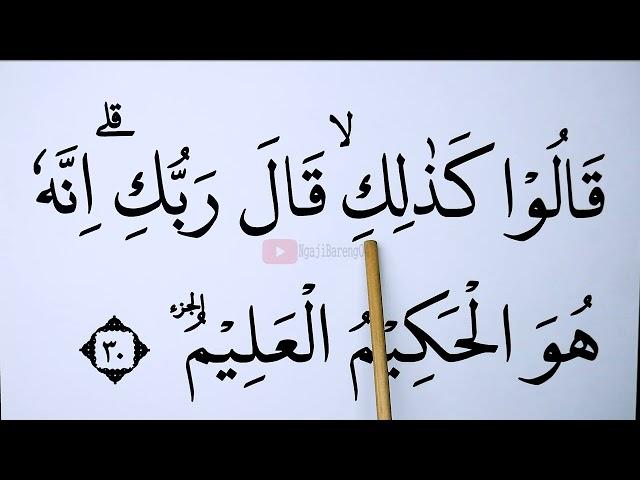 قَالُوْا كَذٰلِكِۙ قَالَ رَبُّكِۗ اِنَّهٗ
هُوَ الْحَكِيْمُ الْعَلِيْمُ ۔ الجزء ٣٠